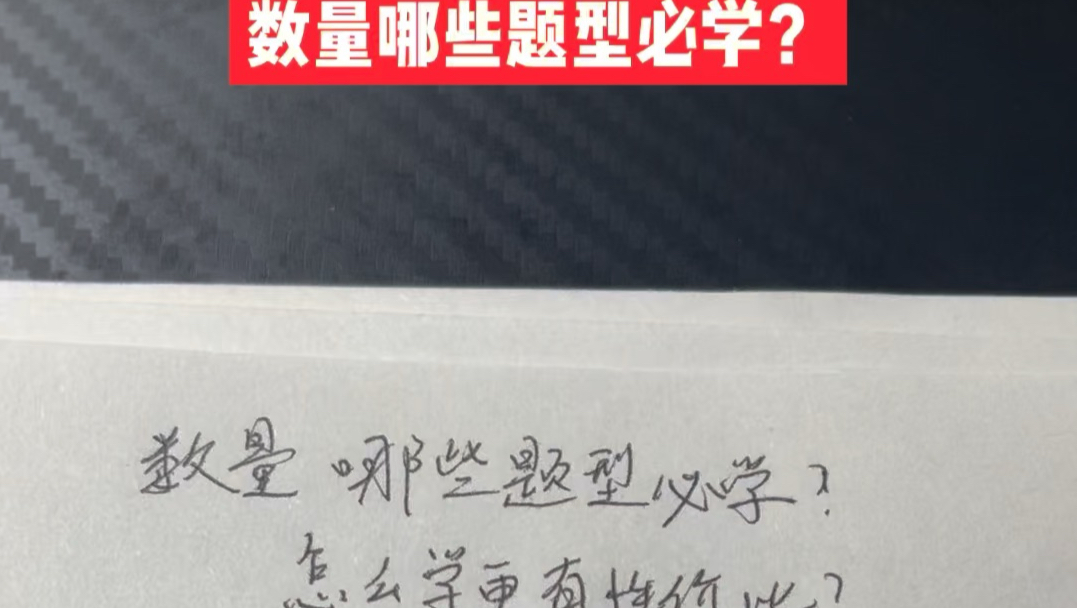 数量哪些题型必学?
数量 哪些题型必学?
怎么学更有性价比?